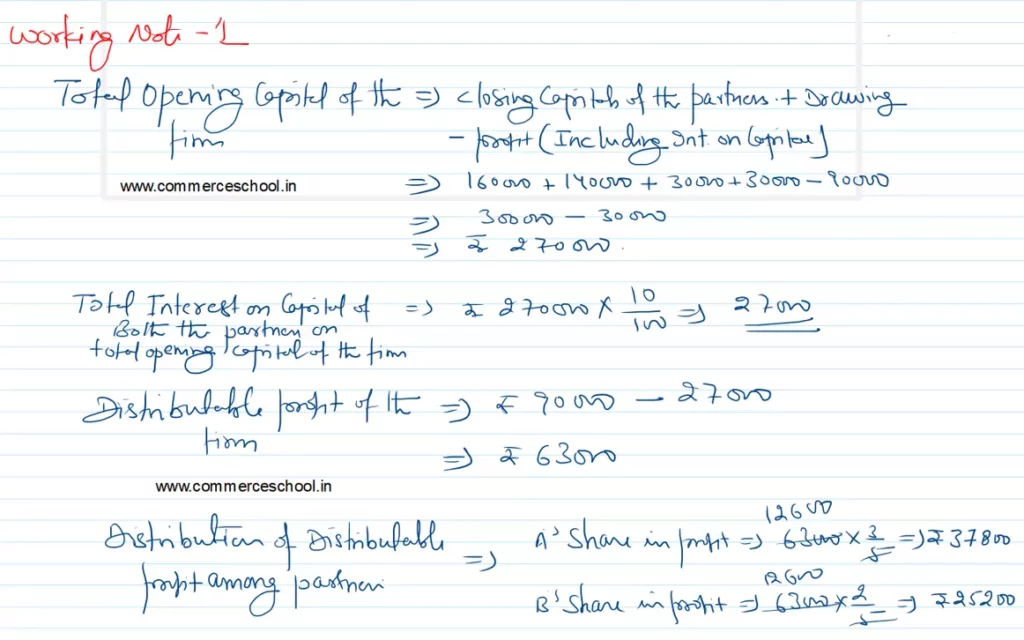 Working Note -1
Total Opening Capital of the => closing Capitals of the partners + Drawing
firm - profit (Including Int. on Capital)
www.commerceschool.in => 160000 + 140000 + 30000 + 30000 - 90000
=> 300000 - 30000
=> ₹ 270000.
Total Interest on Capital of => ₹ 270000 × 10/100 => 27000
Both the partner on
total opening capital of the firm
Distributable profit of the => ₹ 90000 - 27000
firm
=> ₹ 63000
www.commerceschool.in
12600
Distribution of Distributable => A's Share in profit => 63000 × 3/5 => ₹ 37800
12600
profit among partner B's Share in profit => 63000 × 2/5 => ₹ 25200